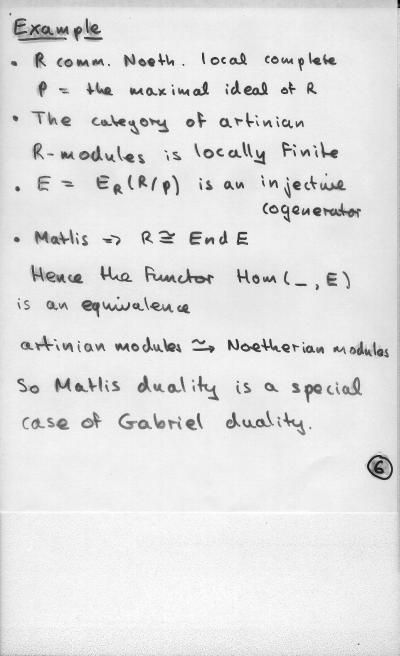 Example
• R comm. Noeth. local complete
P = the maximal ideal of R
• The category of artinian
R-modules is locally finite
• E = E_R(R/p) is an injective
cogenerator
• Matlis => R ≅ End E
Hence the functor Hom(_, E)
is an equivalence
artinian modules ⥲ Noetherian modules
So Matlis duality is a special
case of Gabriel duality.
6